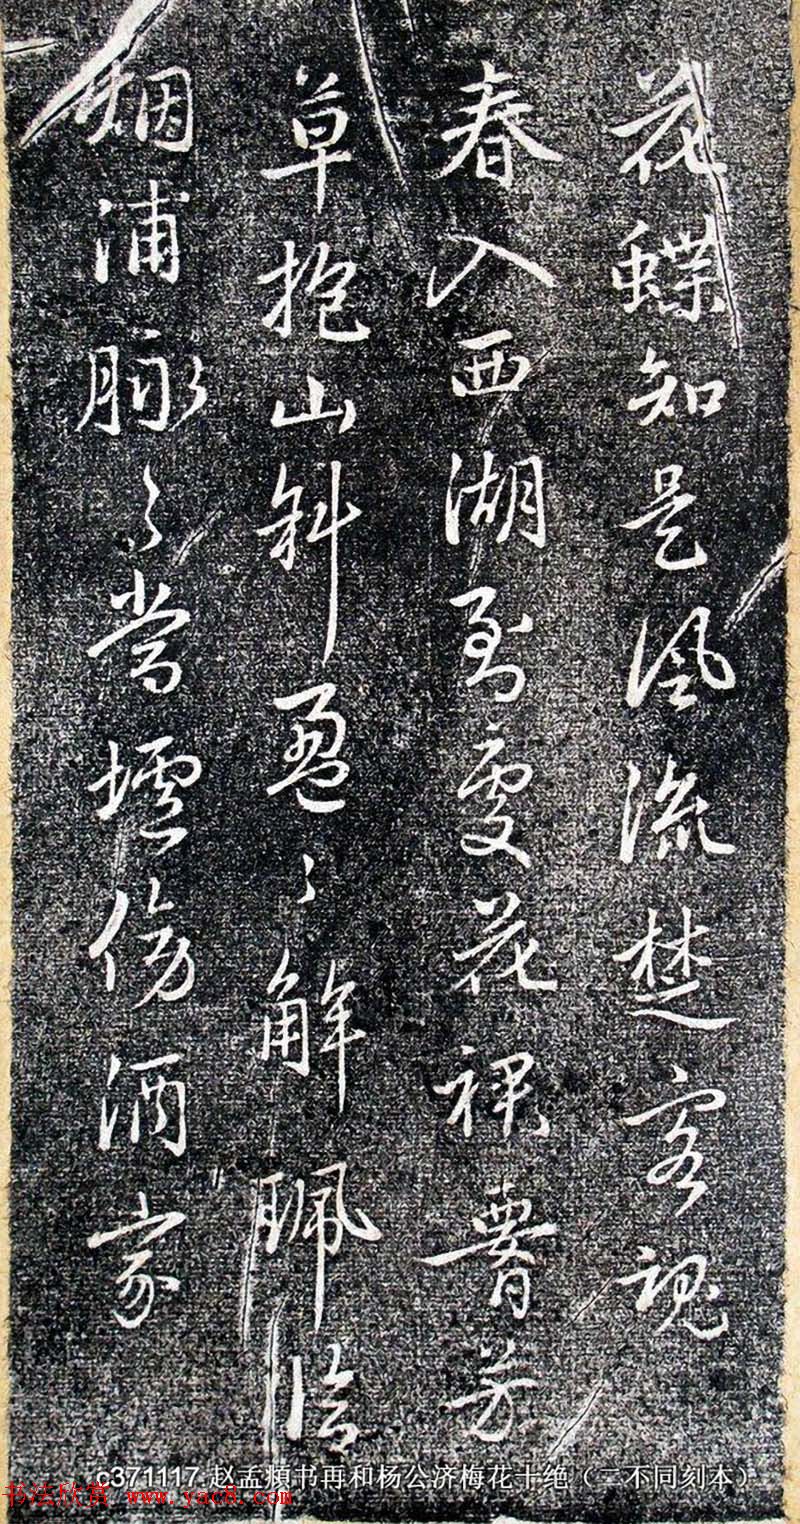 花蝶知是风流楚客魂
春入西湖到处花裙腰芳
草抱山斜盈〻解珮临
烟浦脉〻当垆傍酒家
c371117 赵孟頫书再和杨公济梅花十绝（二不同刻本）
书法欣赏 www.yac8.com